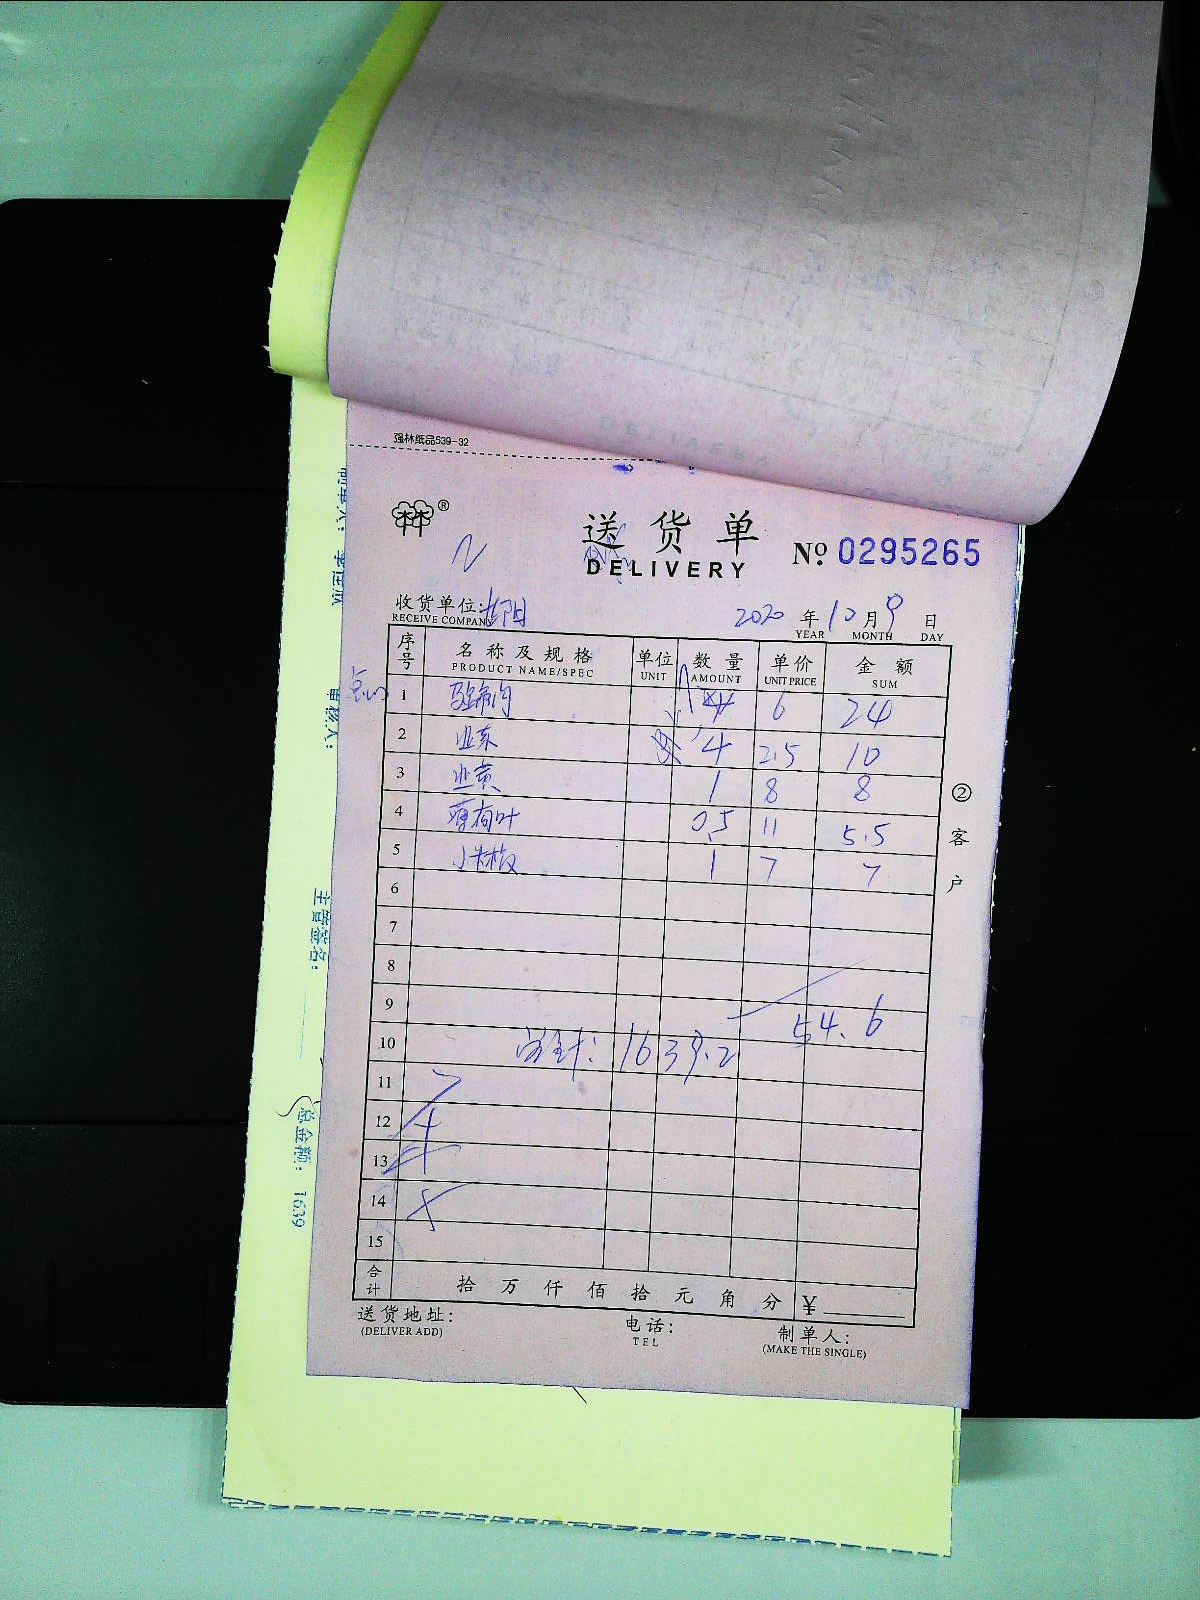 强林纸品539-32
®
送货单
DELIVERY
№ 0295265
收货单位:
RECEIVE COMPANY
2020 年 10 月 9 日
YEAR MONTH DAY
序号 名称及规格 单位 数量 单价 金额
PRODUCT NAME/SPEC UNIT AMOUNT UNIT PRICE SUM
点心
1 4 6 24
2 韭菜 4 2.5 10
3 韭黄 1 8 8
4 薄荷叶 0.5 11 5.5
5 小米椒 1 7 7
6
7
8
9 54.6
10 1639.2
11
12
13
14
15
合计 拾 万 仟 佰 拾 元 角 分 ¥
送货地址:
(DELIVER ADD)
电话:
TEL
制单人:
(MAKE THE SINGLE)
②客户
审核人:
主管签名:
总金额: 1639